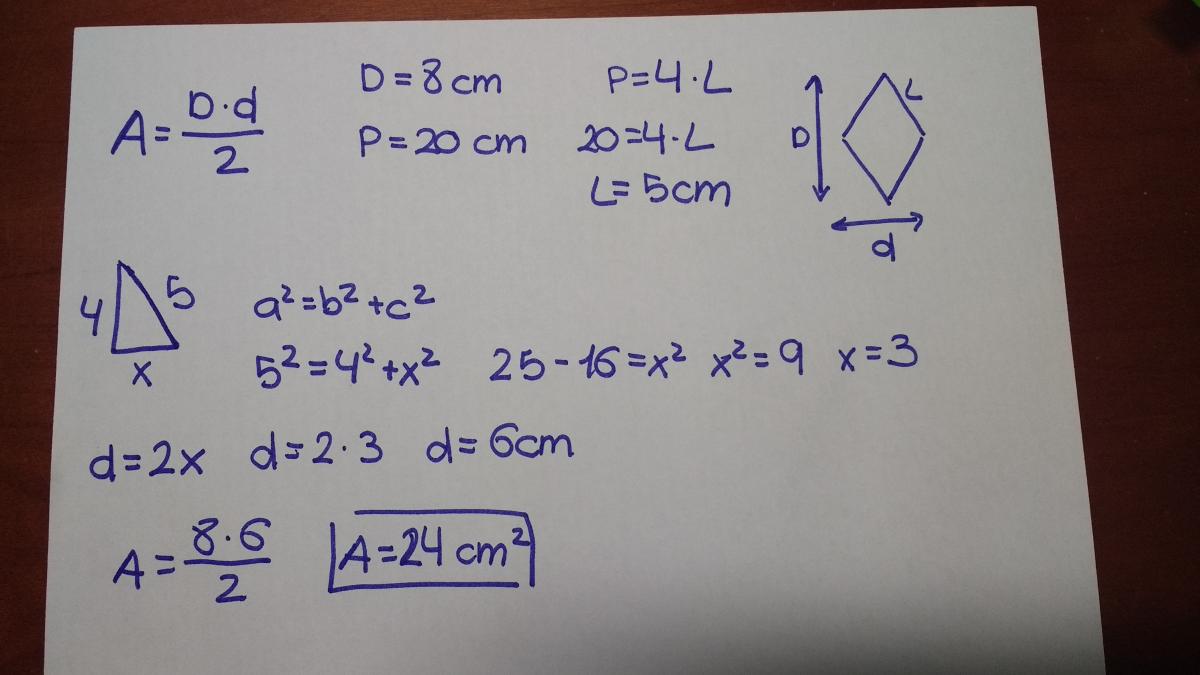 A = D·d / 2
D = 8 cm
P = 20 cm
P = 4·L
20 = 4·L
L = 5 cm
L
D
d
4
5
x
a² = b² + c²
5² = 4² + x² 25 - 16 = x² x² = 9 x = 3
d = 2x d = 2·3 d = 6cm
A = 8·6 / 2 A = 24 cm²